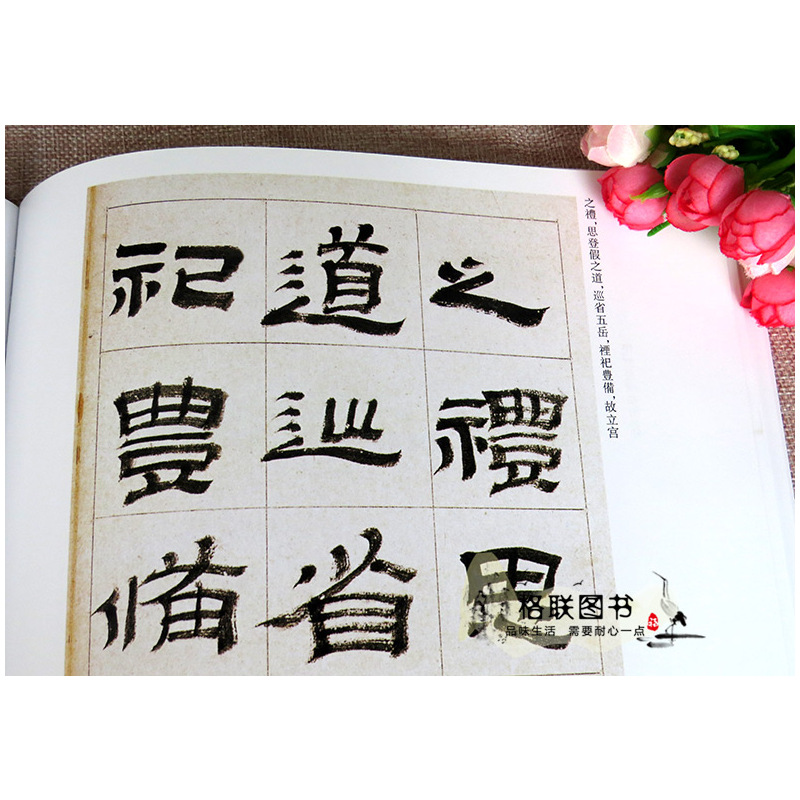 之禮思
道巡省
祀豊備
之禮，思登假之道，巡省五岳，禋祀豊備，故立宫
格联图书
品味生活 需要耐心一点